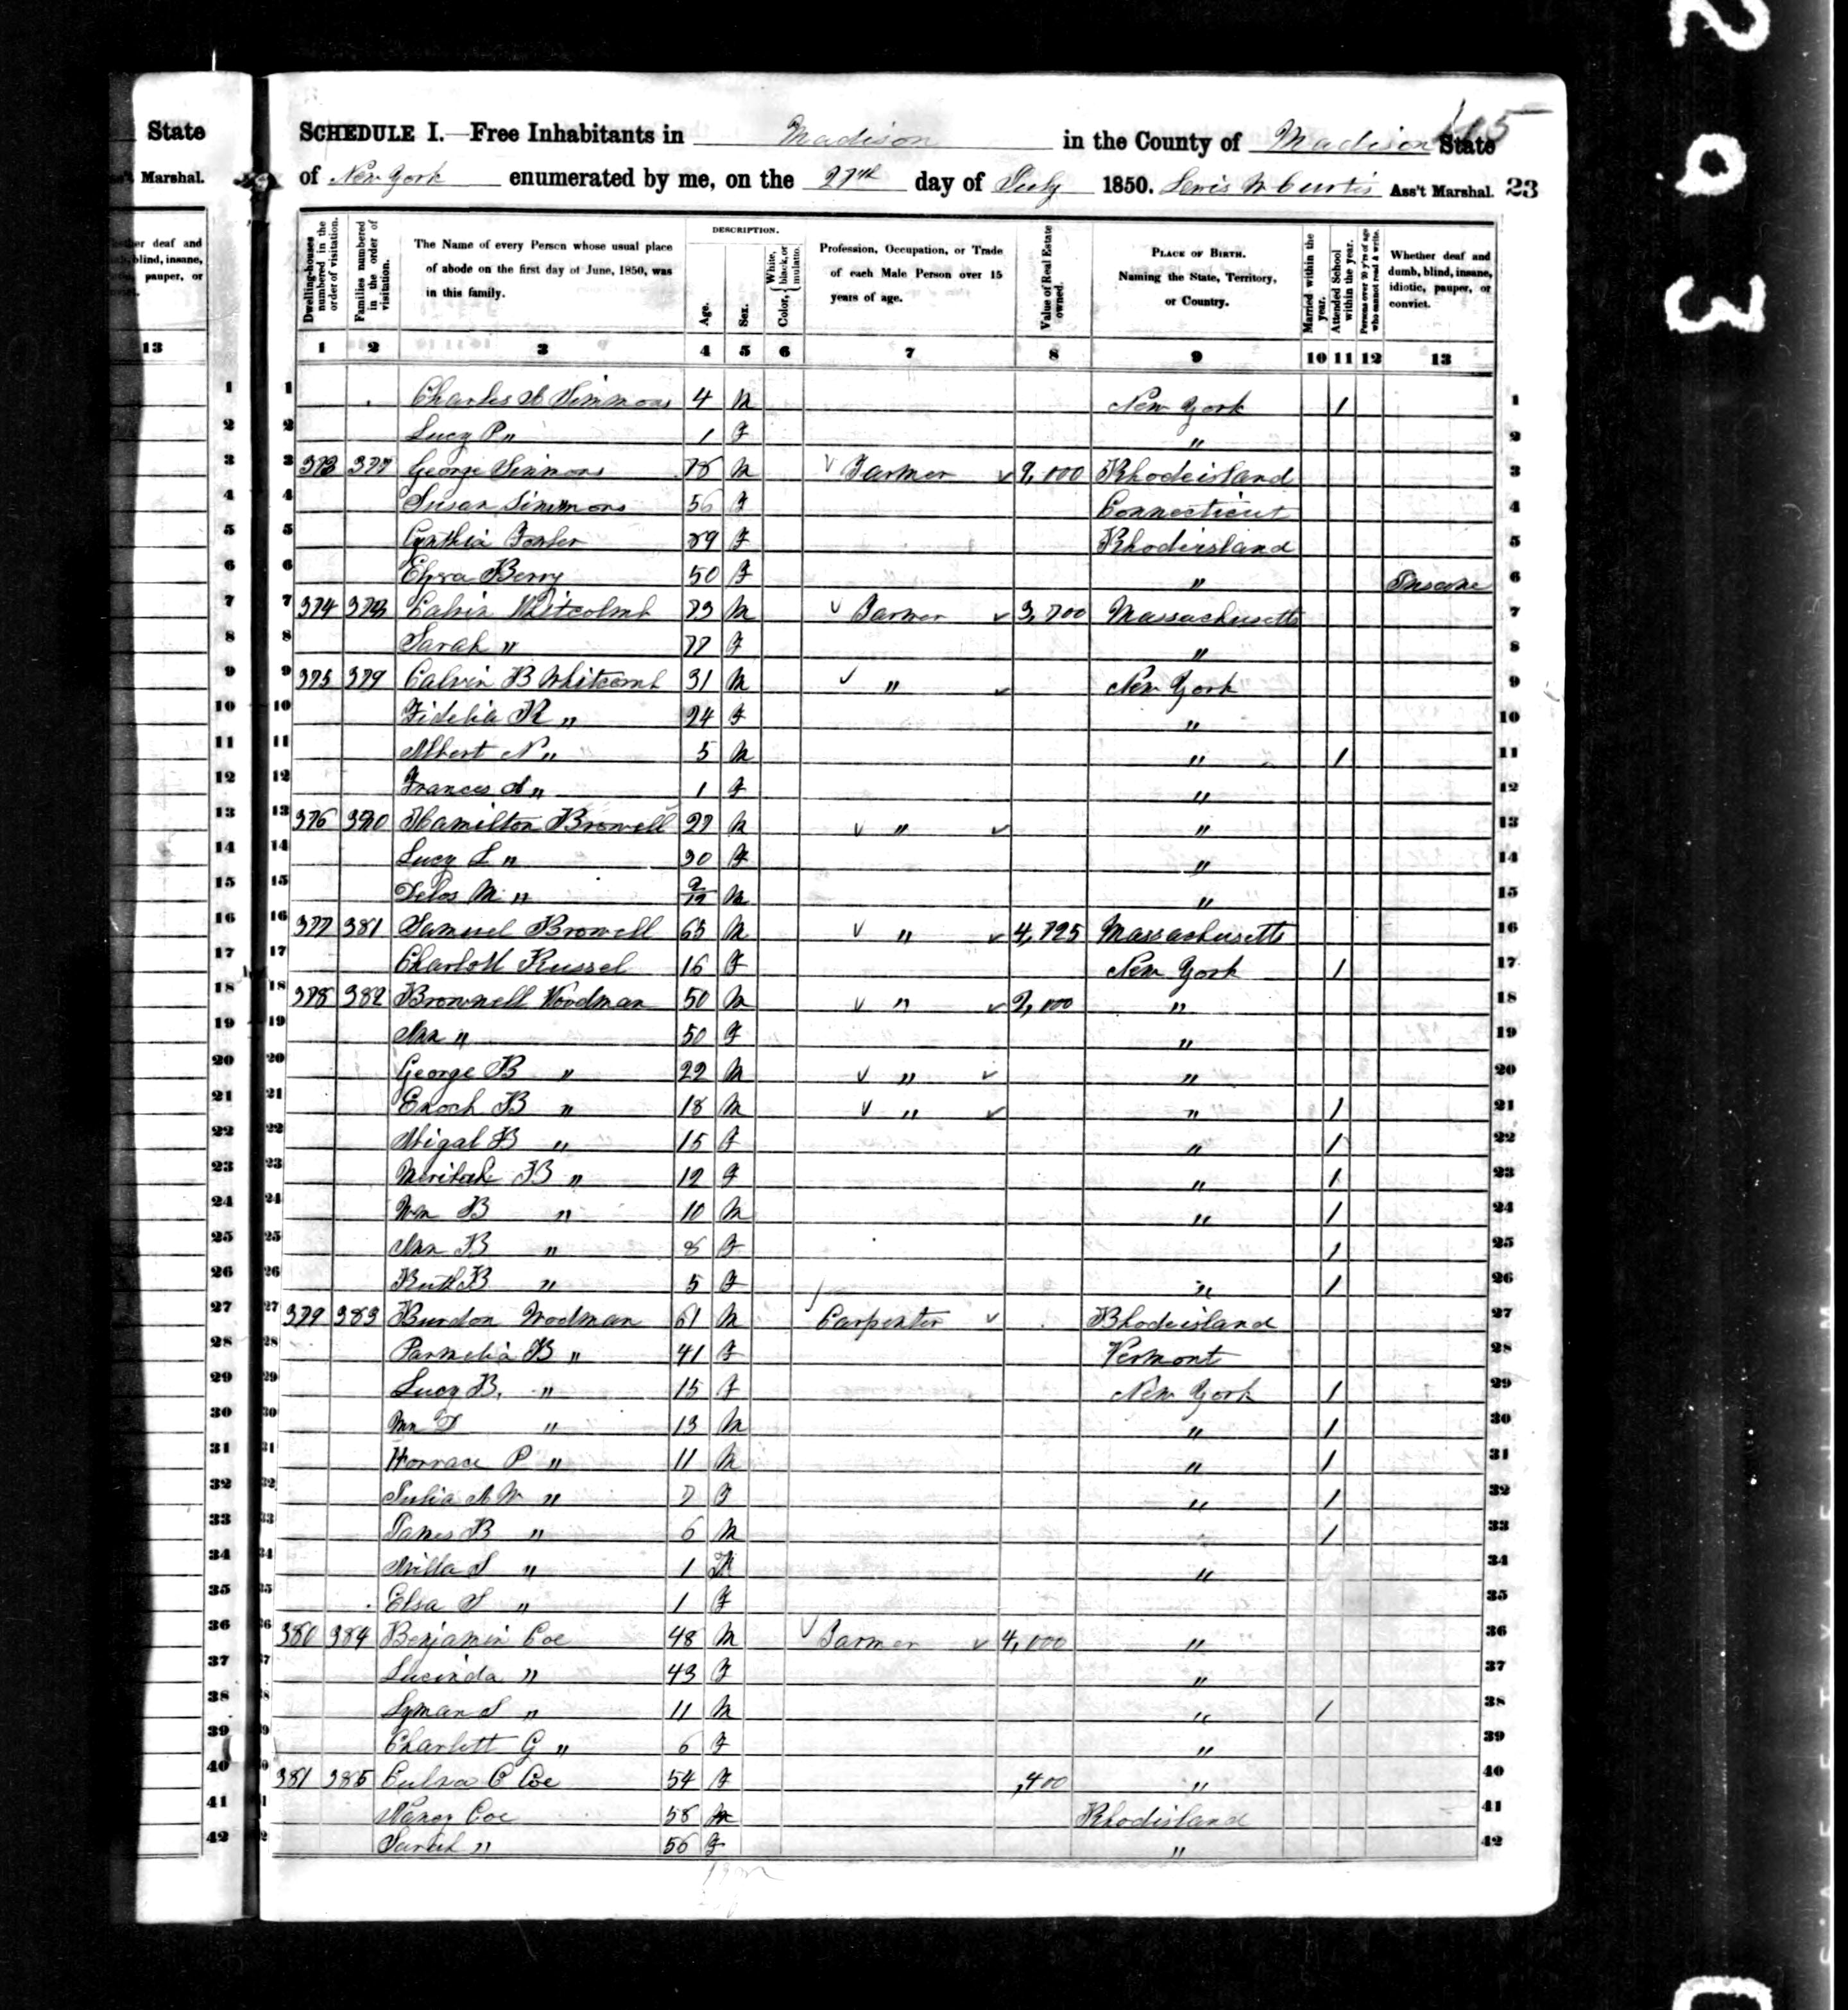 State
Marshal.
13
SCHEDULE I.—Free Inhabitants in Madison in the County of Madison State
of New York enumerated by me, on the 27th day of July 1850. Lewis W Curtis Ass't Marshal. 23
Dwelling-houses numbered in the order of visitation.
Families numbered in the order of visitation.
The Name of every Person whose usual place of abode on the first day of June, 1850, was in this family.
DESCRIPTION.
Age.
Sex.
Color, { White, black, or mulatto.
Profession, Occupation, or Trade of each Male Person over 15 years of age.
Value of Real Estate owned.
PLACE OF BIRTH. Naming the State, Territory, or Country.
Married within the year.
Attended School within the year.
Persons over 20 y'rs of age who cannot read & write.
Whether deaf and dumb, blind, insane, idiotic, pauper, or convict.
1 2 3 4 5 6 7 8 9 10 11 12 13
1 Charles A Simmons 4 M New York / 1
2 Lucy P " 1 F " 2
3 373 377 George Simmons 78 M Farmer 2,000 Rhodeisland 3
4 Susan Simmons 56 F Connecticut 4
5 Cynthia 89 F Rhodeisland 5
6 Berry 50 F " Insane 6
7 374 378 Calvin Whitcomb 73 M Farmer 3,700 Massachusetts 7
8 Sarah " 77 F " 8
9 375 379 Calvin B Whitcomb 31 M " New York 9
10 Fidelia R " 24 F " 10
11 Albert N " 5 M " / 11
12 Frances A " 1 F " 12
13 376 380 Hamilton Browell 27 M " " 13
14 Lucy L " 30 F " 14
15 Delos M " 9/12 M " 15
16 377 381 Samuel Browell 65 M " 4,725 Massachusetts 16
17 Charlott Russel 16 F New York / 17
18 378 382 Brownell Woodman 50 M " 2,000 " 18
19 Ann " 50 F " 19
20 George B " 22 M " " 20
21 Enoch B " 18 M " " / 21
22 Abigal B " 15 F " / 22
23 B " 12 F " / 23
24 Wm B " 10 M " / 24
25 Ann B " 8 F / 25
26 Ruth B " 5 F " / 26
27 379 383 Burdon Woodman 61 M Carpenter Rhodeisland 27
28 Parmelia B " 41 F Vermont 28
29 Lucy B. " 15 F New York / 29
30 Wm D " 13 M " / 30
31 Horrace P " 11 M " / 31
32 Julia A W " 7 F " / 32
33 James B " 6 M / 33
34 Willa S " 1 M " 34
35 Elsa S " 1 F 35
36 380 384 Benjamin Coe 48 M Farmer 4,000 " 36
37 Lucinda " 43 F " 37
38 Lyman S " 11 M " / 38
39 Charlott G " 6 F " 39
40 381 385 C Coe 54 F ,400 " 40
41 Nancy Coe 58 Rhodisland 41
42 Sarah " 56 F " 42
293